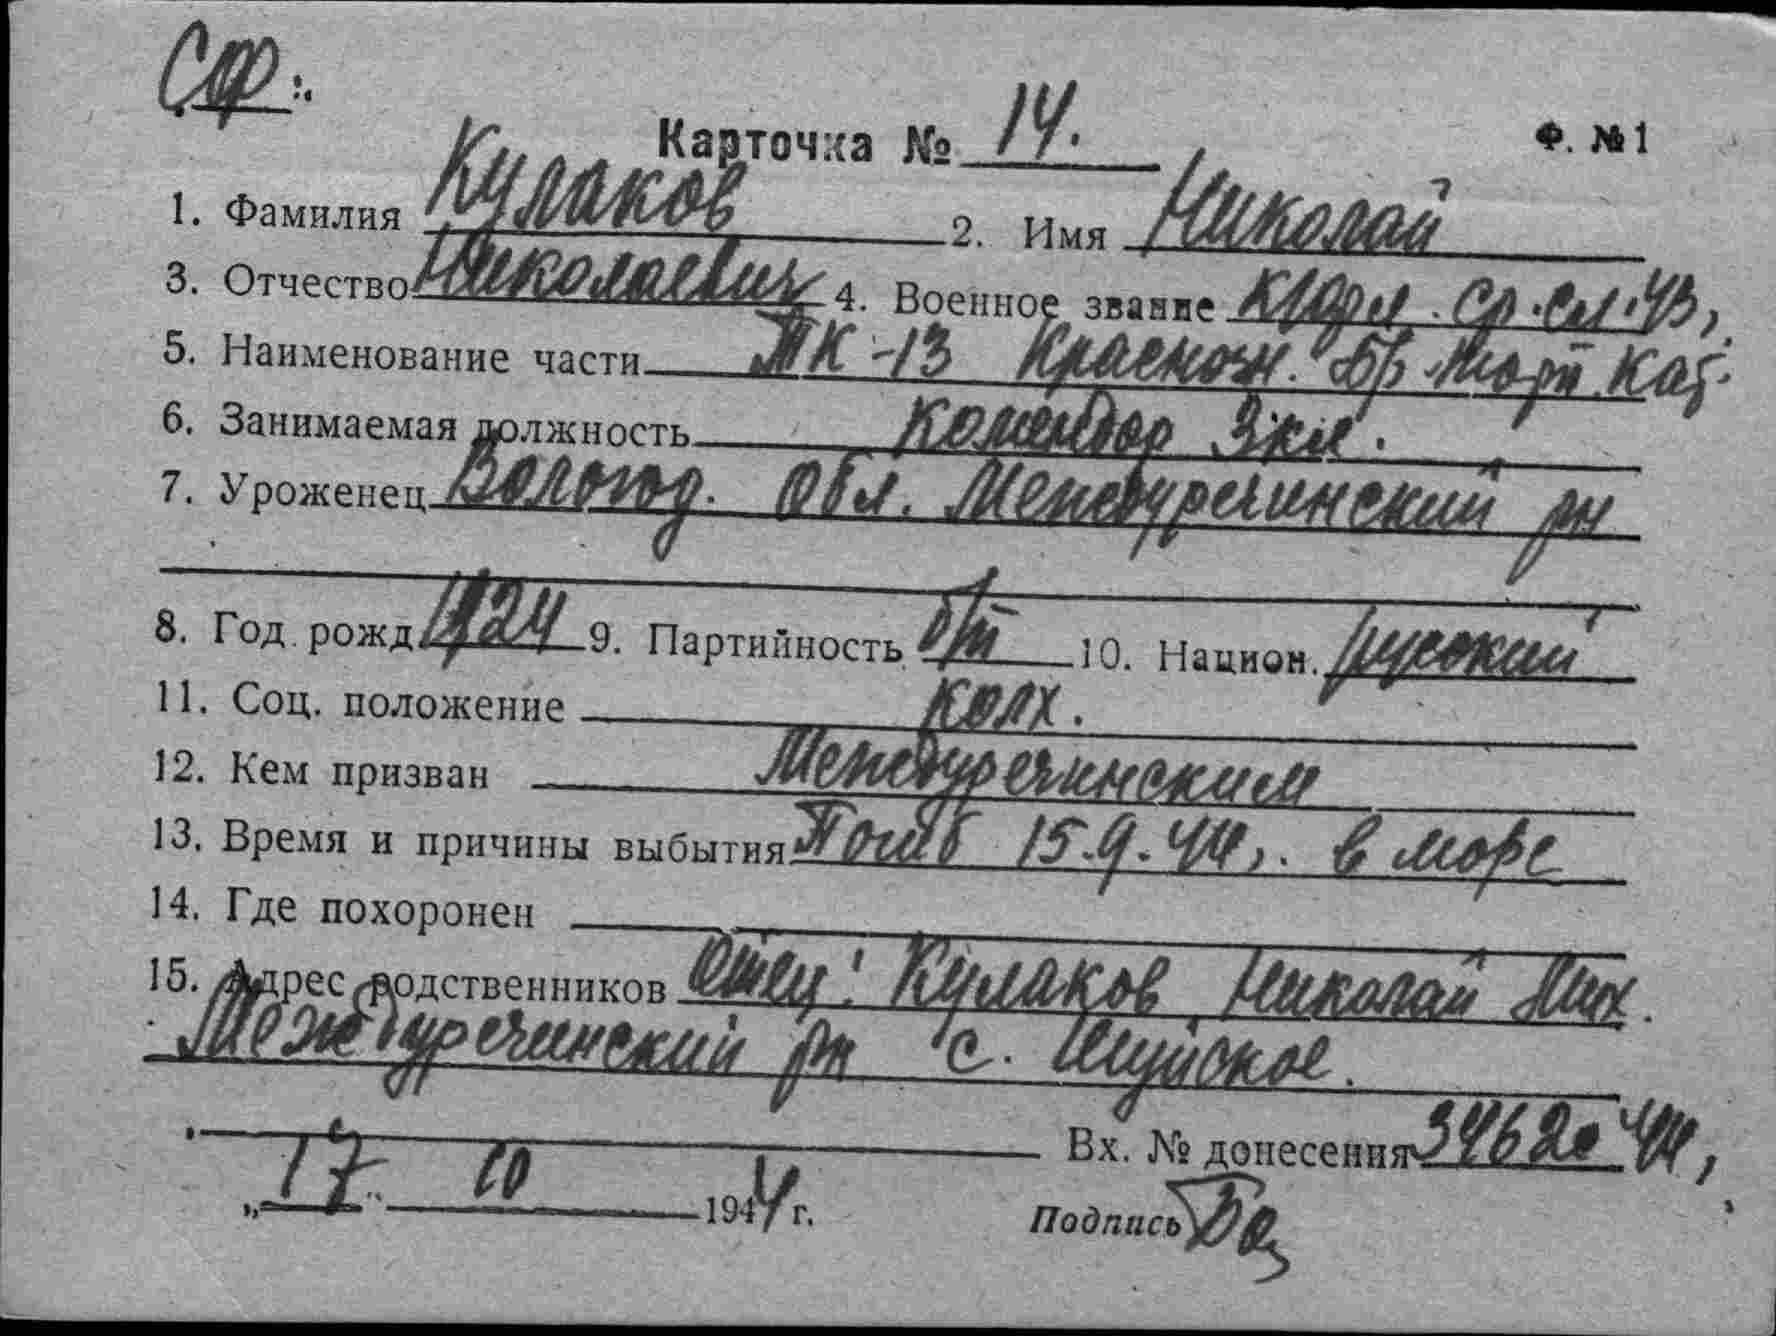 СФ.
Карточка № 14. Ф. № 1
1. Фамилия Кулаков 2. Имя Николай
3. Отчество Николаевич 4. Военное звание кр-фл. ср. сл. 43,
5. Наименование части ТК-13 Краснозн. Бр. Торп. Кат.
6. Занимаемая должность Комендор Зкл.
7. Уроженец Вологод. Обл. Междуречинский рн
8. Год. рожд. 1924 9. Партийность б/п 10. Национ. русский
11. Соц. положение колх.
12. Кем призван Междуречинским
13. Время и причины выбытия Погиб 15.9.44,. в море
14. Где похоронен
15. Адрес родственников Отец: Кулаков Николай Мих.
Междуречинский рн с. Шуйское.
Вх. № донесения 3462с 44,
„17" 10 1944 г. Подпись